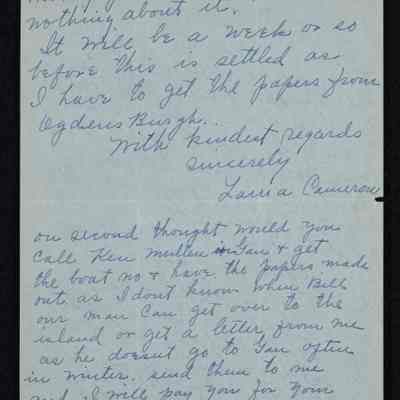 nothing about it.
It will be a week or so
before this is settled as
I have to get the papers from
Ogdens Burgh.
With kindest regards
sincerely
Cameron
on second thought would you
call Ken Mullen in Gan & get
the boat no & have the papers made
out as I dont know when Bill
our man can get over to the
island or get a letter from me
as he doesnt go to Gan often
in winter. send them to me
and I will pay you for your